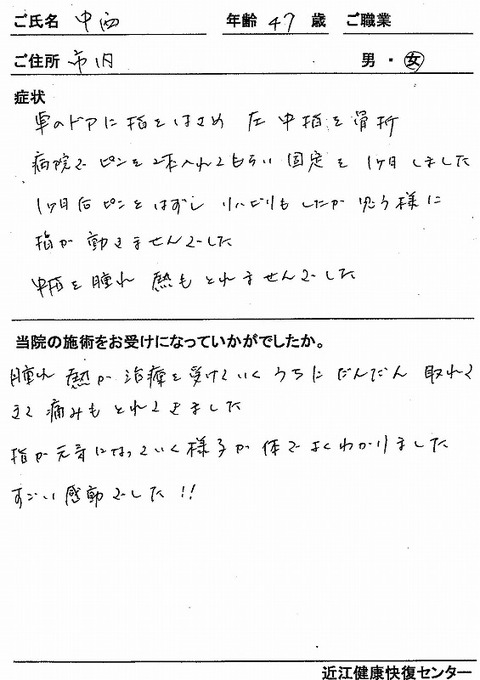 ご氏名 中西 年齢 47 歳 ご職業
ご住所 市内 男・女
症状
車のドアに指をはさめ 左 中指を骨折
病院で ピンを 2本入れてもらい 固定を 1ヶ月 しました
1ヶ月后 ピンを はずし リハビリも したが 思う様に
指が 動きませんでした
中指を 腫れ 熱も とれませんでした
当院の施術をお受けになっていかがでしたか。
腫れ 熱が 治療を受けていく うちに だんだん 取れて
きて 痛みも とれてきました
指が 元気になっていく 様子が 体で よくわかりました
すごい 感動でした!!
近江健康快復センター